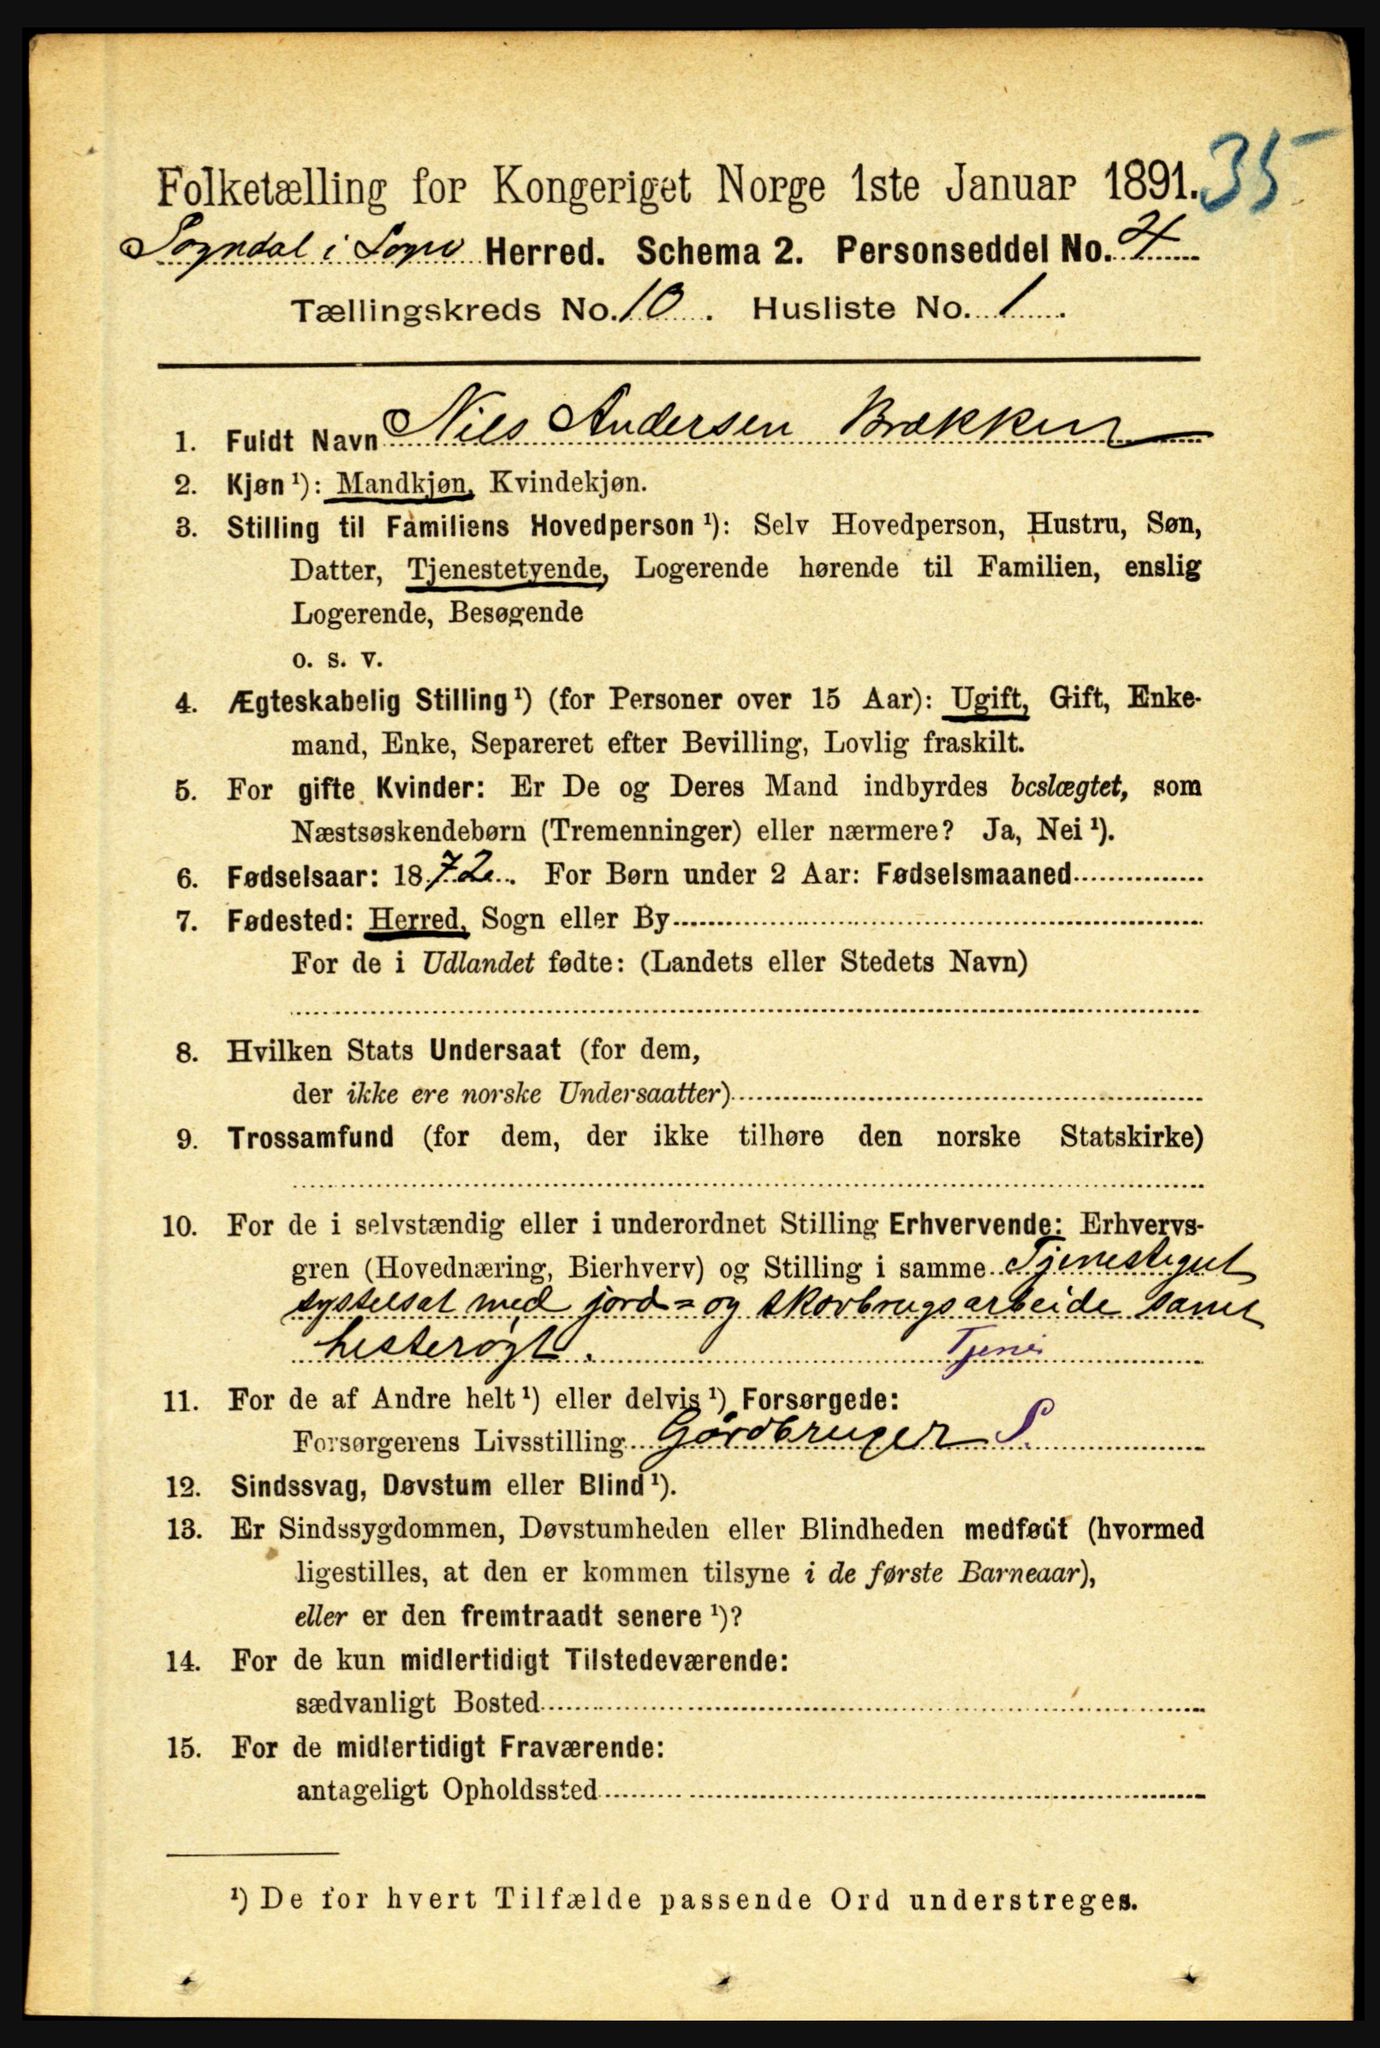 35
Folketælling for Kongeriget Norge 1ste Januar 1891.
Sogndal i Sogn Herred. Schema 2. Personseddel No. 4
Tællingskreds No. 10. Husliste No. 1.
1. Fuldt Navn Nils Andersen Brækken
2. Kjøn¹): Mandkjøn, Kvindekjøn.
3. Stilling til Familiens Hovedperson¹): Selv Hovedperson, Hustru, Søn,
Datter, Tjenestetyende, Logerende hørende til Familien, enslig
Logerende, Besøgende
o. s. v.
4. Ægteskabelig Stilling¹) (for Personer over 15 Aar): Ugift, Gift, Enke-
mand, Enke, Separeret efter Bevilling, Lovlig fraskilt.
5. For gifte Kvinder: Er De og Deres Mand indbyrdes beslægtet, som
Næstsøskendebørn (Tremenninger) eller nærmere? Ja, Nei¹).
6. Fødselsaar: 1872. For Børn under 2 Aar: Fødselsmaaned
7. Fødested: Herred, Sogn eller By
For de i Udlandet fødte: (Landets eller Stedets Navn)
8. Hvilken Stats Undersaat (for dem,
der ikke ere norske Undersaatter)
9. Trossamfund (for dem, der ikke tilhøre den norske Statskirke)
10. For de i selvstændig eller i underordnet Stilling Erhvervende: Erhvervs-
gren (Hovednæring, Bierhverv) og Stilling i samme Tjenestegut
sysselsat med jord= og skovbrugsarbeide samt
hesterøgt. Tjene
11. For de af Andre helt¹) eller delvis¹) Forsørgede:
Forsørgerens Livsstilling Gårdbruger S.
12. Sindssvag, Døvstum eller Blind¹).
13. Er Sindssygdommen, Døvstumheden eller Blindheden medfødt (hvormed
ligestilles, at den er kommen tilsyne i de første Barneaar),
eller er den fremtraadt senere¹)?
14. For de kun midlertidigt Tilstedeværende:
sædvanligt Bosted
15. For de midlertidigt Fraværende:
antageligt Opholdssted
¹) De for hvert Tilfælde passende Ord understreges.